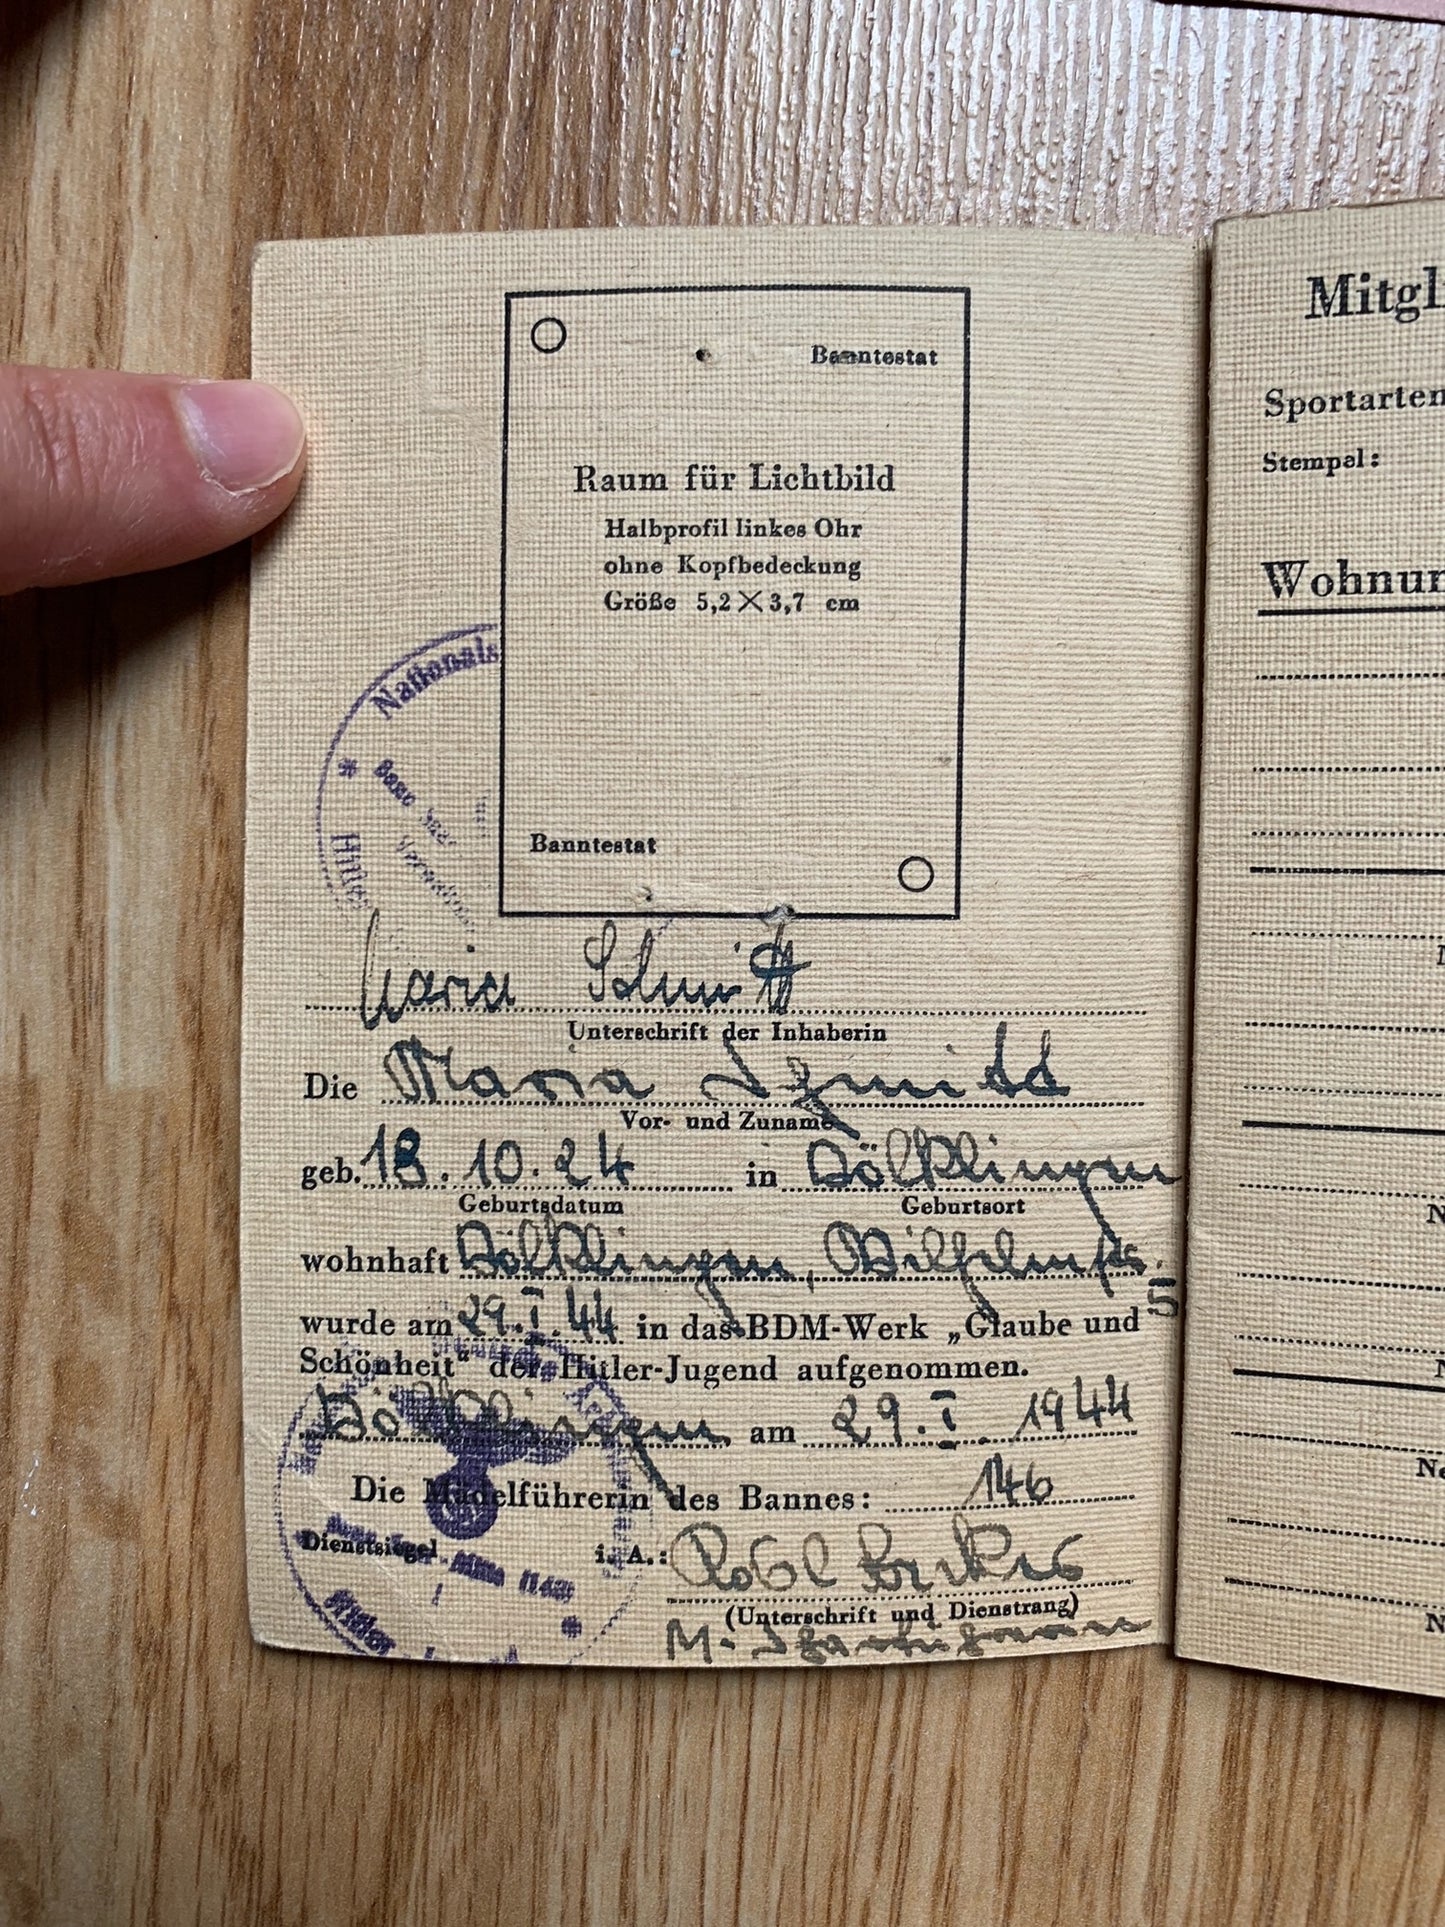 Banntestat
Raum für Lichtbild
Halbprofil linkes Ohr
ohne Kopfbedeckung
Größe 5,2×3,7 cm
Nationals
Banntestat
Maria Schmitt
Unterschrift der Inhaberin
Die Maria Schmitt
Vor- und Zuname
geb. 18.10.24 in Völklingen
Geburtsdatum Geburtsort
wohnhaft Völklingen, Wilhelmstr.
5
wurde am 29.I.44 in das BDM-Werk „Glaube und
Schönheit“ der Hitler-Jugend aufgenommen.
Völklingen am 29.I.1944
Die Mädelführerin des Bannes: 146
Dienstsiegel i. A.:
(Unterschrift und Dienstrang)
M.
Hitler
Mitgl
Sportarten
Stempel:
Wohnun